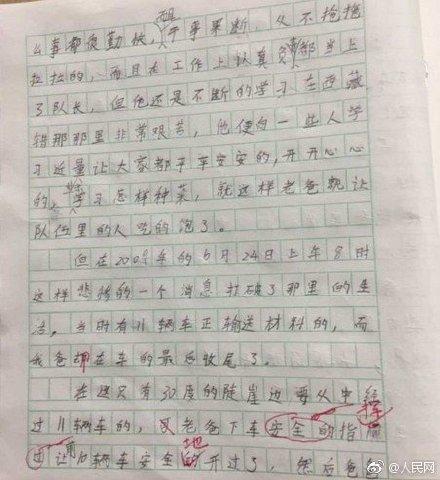 么事都很勤快,干事果断,从不拖拖
拉拉的,而且在工作上认真负责都当上
了队长,但他还是不断的学习在西藏
错那那里非常艰苦,他便向一些人学
习尽量让大家都平平安安的,开开心心
的,学习怎样种菜,就这样老爸就让
队伍里的人吃的饱了。
但在2009年的6月24日上午8时
这样悲惨的一个消息打破了那里的生
活。当时有11辆车正输送材料的,而
我爸在车的最后收尾了。
在这只有30度的陡崖边要从中经
过11辆车的,老爸下车安全的指挥
让前10辆车安全地的开过了,然后爸爸
@人民网